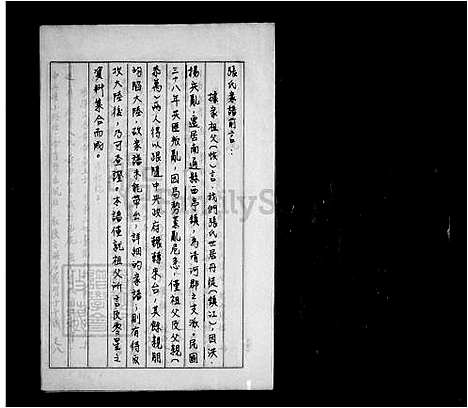 張氏家譜前言:
據家祖父(悅)言,我們張氏世居丹徒(鎮江)因洪
楊兵亂,遷居南通縣西亭鎮,為清河郡之支派。民國
三十八年共匪叛亂,因局勢紊亂危急,僅祖父及父親(
萬)兩人得以跟隨中央政府輾轉來台,其餘親朋
均陷大陸,故家譜未能帶出,詳細的家譜,則有待反
攻大陸後,乃可查證。本譜僅就祖父所言及零星之
資料集合而成。
FamilyS